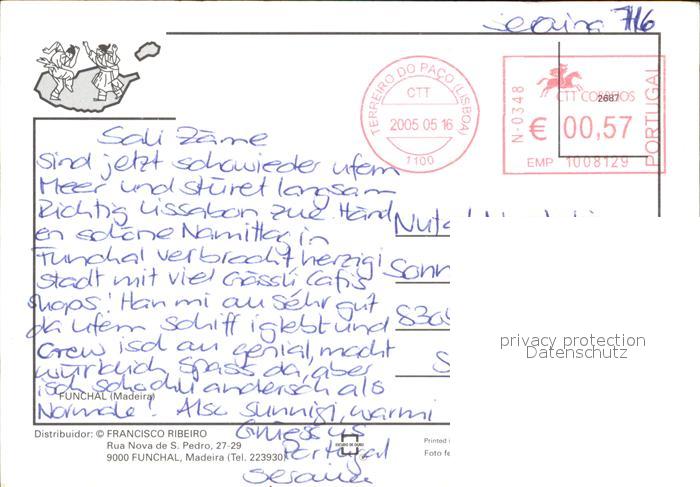 Seraina 7/16
TERREIRO DO PAÇO (LISBOA)
CTT
2005 05 16
1100
N-0348
CTT CORREIOS
2687
€ 00,57
EMP 1008129
PORTUGAL
Sali Zäme
Sind jetzt schowieder ufem
Meer und stüret langsam
Richtig Lissabon zue. Händ
en schöne Namittag in
Funchal verbracht, herzigi
Stadt mit viel Gässli, Cafis
Shops! Han mi au sehr guet
da ufem Schiff iglebt und
Crew isch au genial, macht
würklich Spass da, aber
isch scho chli andersch als
Normale! Also sunnigi, warmi
Grüess us
Portugal
Seraina
Sonn
FUNCHAL (Madeira)
Distribuidor: © FRANCISCO RIBEIRO
Rua Nova de S. Pedro, 27-29
9000 FUNCHAL, Madeira (Tel. 223930)
Printed i
Foto fe
privacy protection
Datenschutz